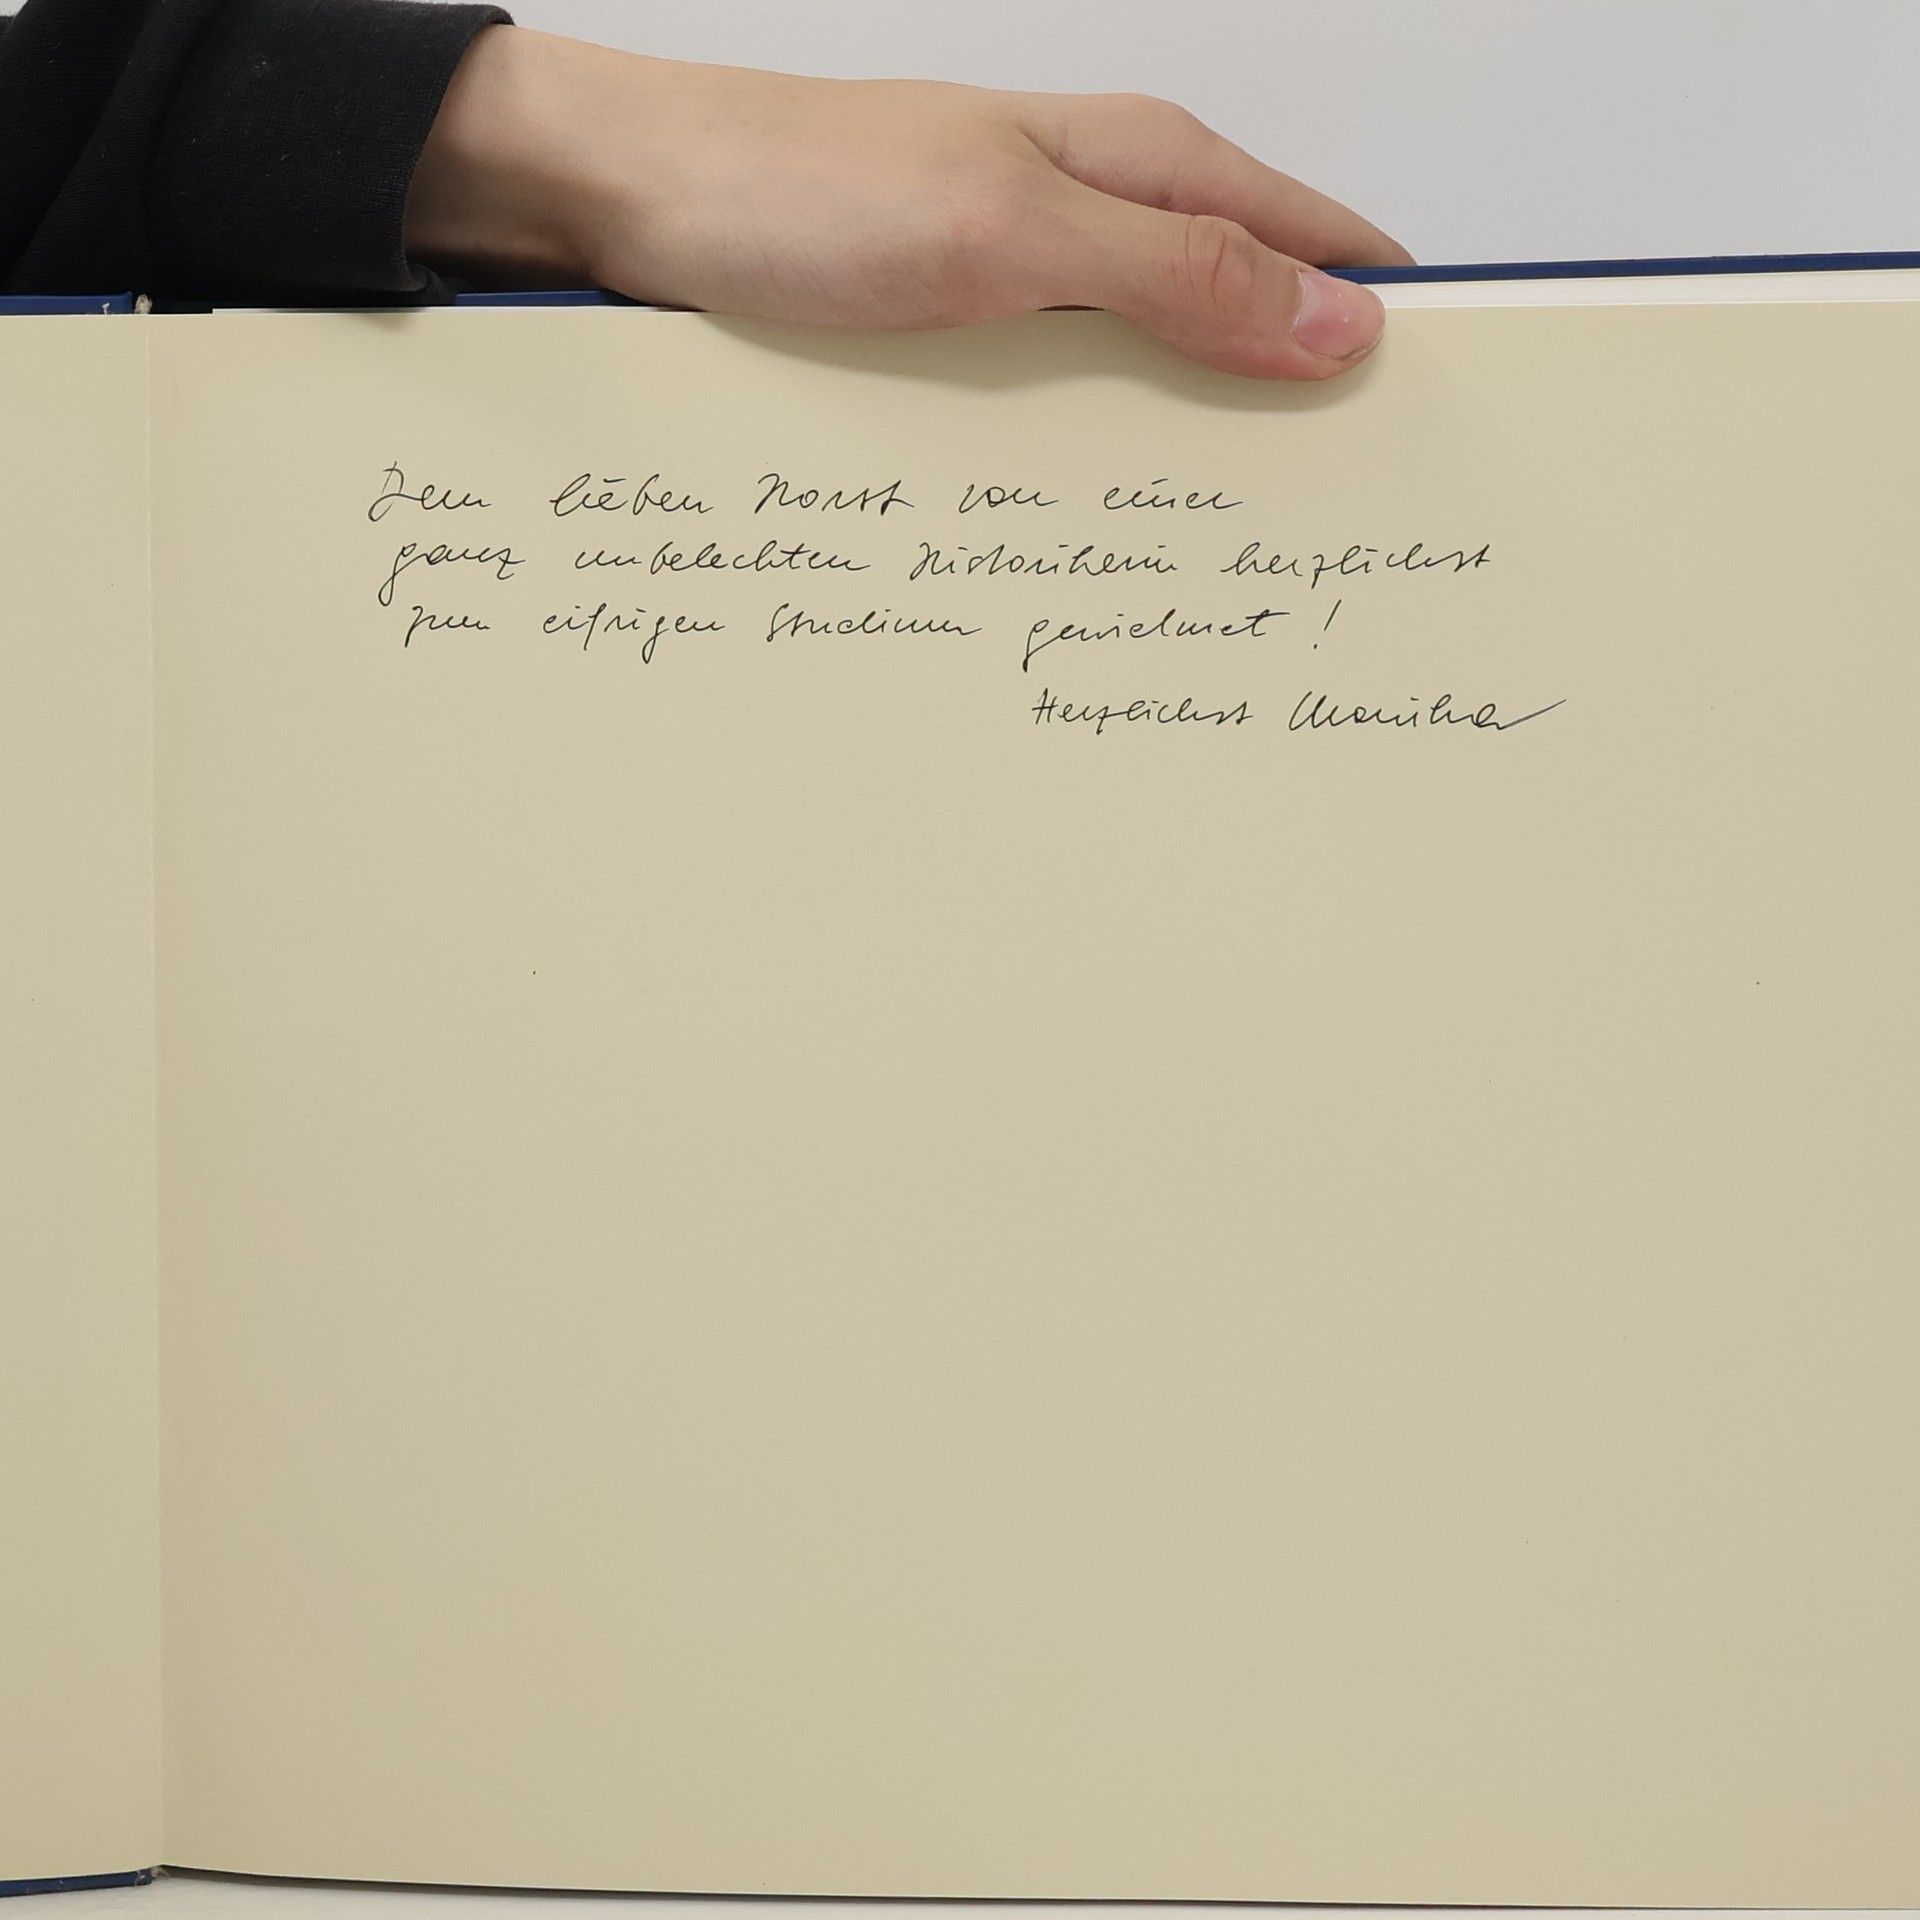 Dem lieben Horst von einer
ganz unbeleckten Historikerin herzlichst
zum eifrigen Studium gewidmet!
Herzlichst Monika